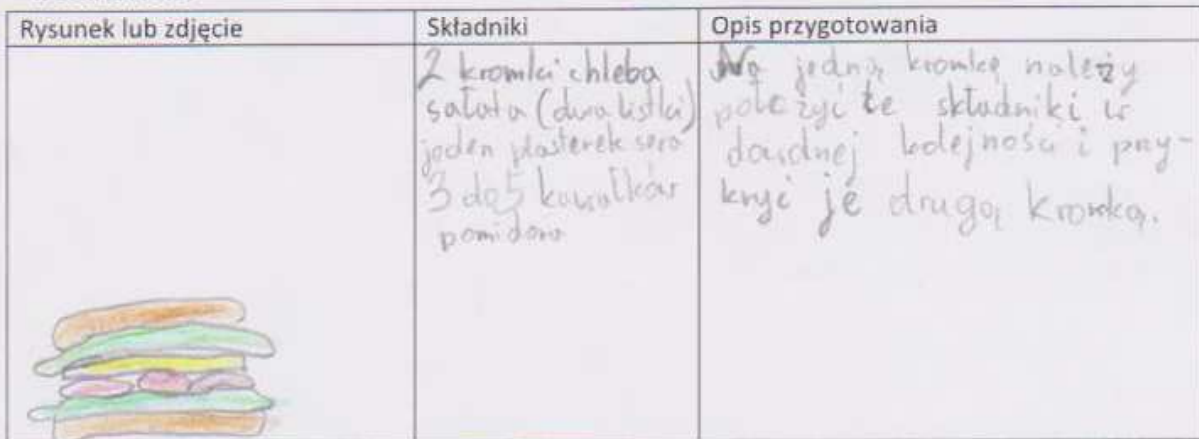 Rysunek lub zdjęcie
Składniki
Opis przygotowania
2 kromki chleba
sałata (dwa listki)
jeden plasterek sera
3 do 5 kawałków
pomidora
Na jedną kromkę należy
położyć te składniki w
dowolnej kolejności i przy-
kryć je drugą kromką.